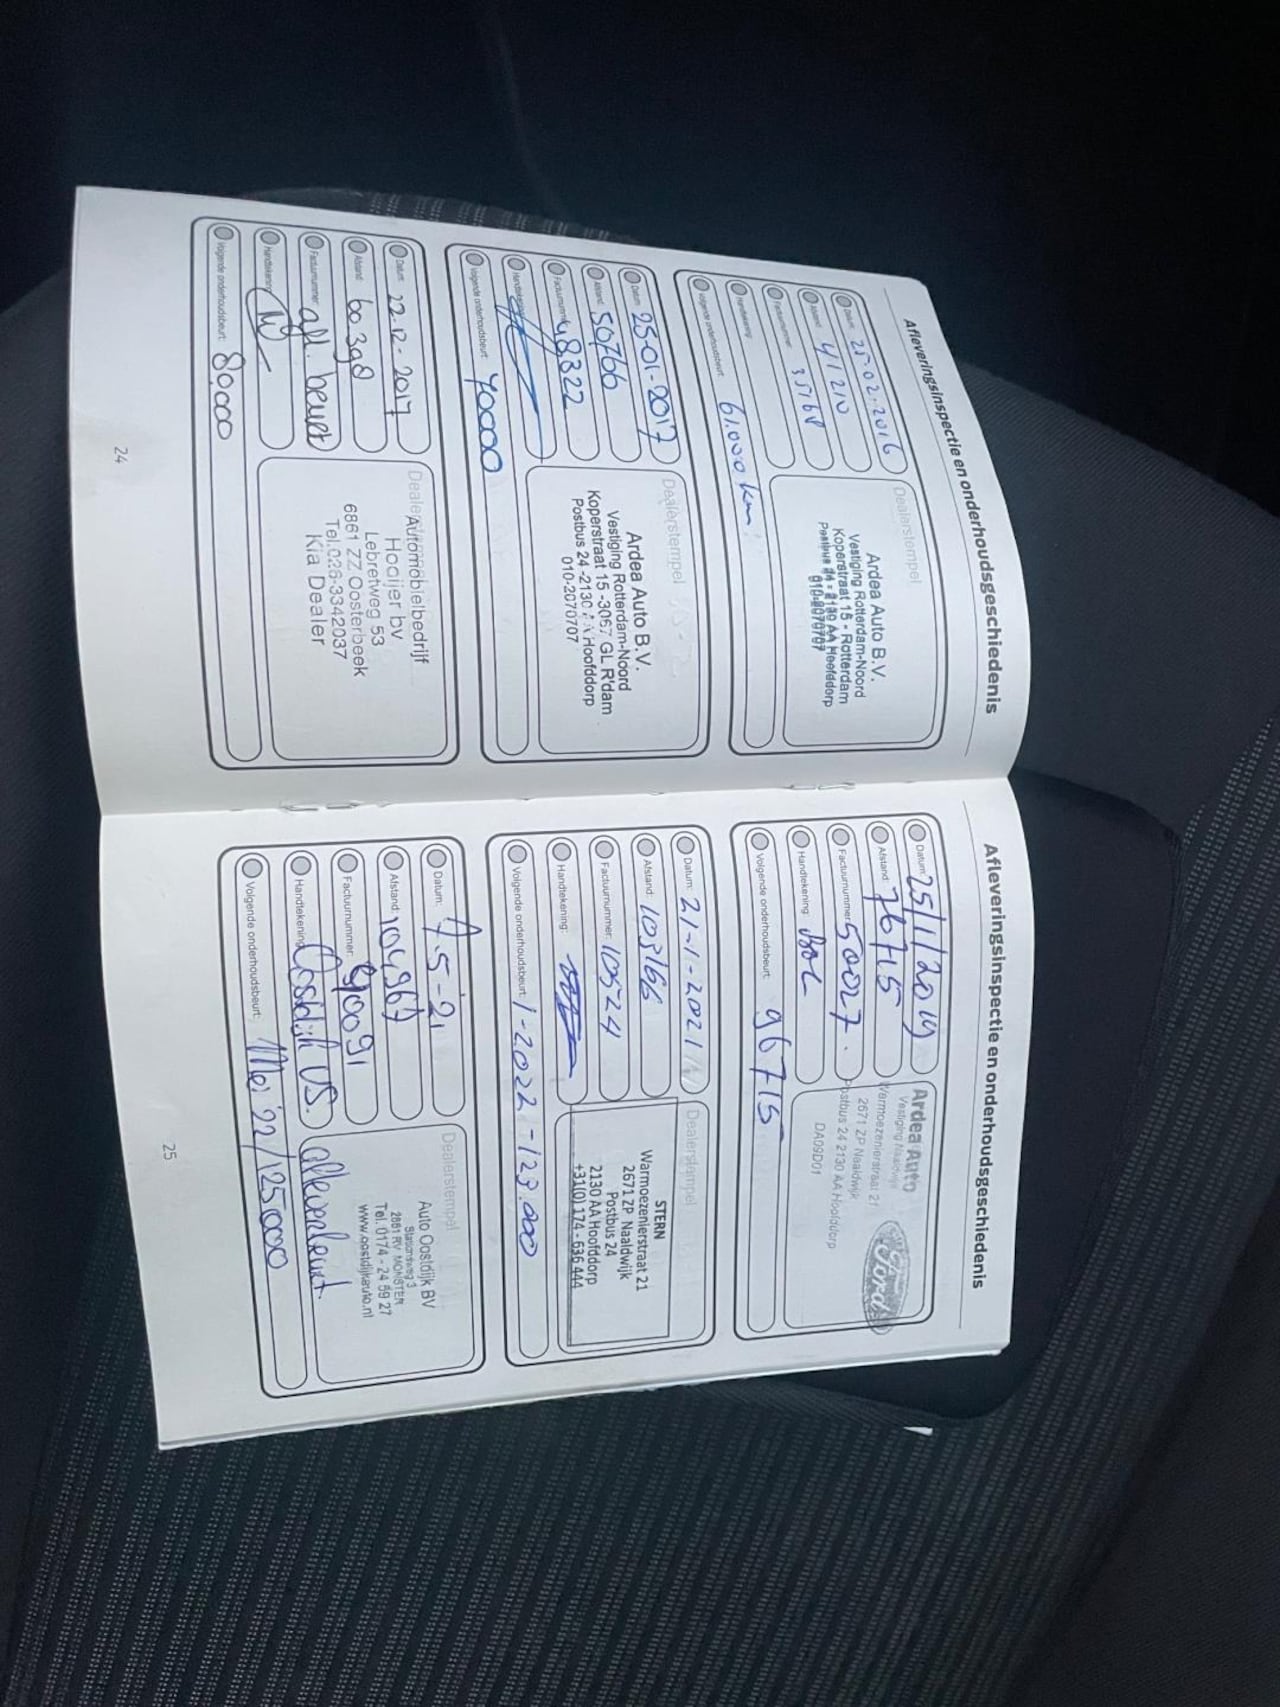 Afleveringsinspectie en onderhoudsgeschiedenis
Datum: 25.02.2016
Afstand: 41210
Factuurnummer: 35768
Handtekening:
Volgende onderhoudsbeurt: 61.000 km
Dealerstempel
Ardea Auto B.V.
Vestiging Rotterdam-Noord
Koperstraat 15 - Rotterdam
Postbus 24 - 2130 AA Hoofddorp
010-2070707
Datum: 25-01-2017
Afstand: 50766
Factuurnummer: 48322
Handtekening:
Volgende onderhoudsbeurt: 70000
Dealerstempel
Ardea Auto B.V.
Vestiging Rotterdam-Noord
Koperstraat 15 -3067 GL R'dam
Postbus 24 -2130 AA Hoofddorp
010-2070707
Datum: 22.12.-2017
Afstand: 60398
Factuurnummer: afl. beurt
Handtekening:
Volgende onderhoudsbeurt: 80.000
Automobielbedrijf
Hooijer bv
Lebretweg 53
6861 ZZ Oosterbeek
Tel.026-3342037
Kia Dealer
24
Afleveringsinspectie en onderhoudsgeschiedenis
Datum: 25/1/2019
Afstand: 76715
Factuurnummer: 50027.
Handtekening:
Volgende onderhoudsbeurt: 96715
Ardea Auto
Vestiging Naaldwijk
Warmoezenierstraat 21
2671 ZP Naaldwijk
Postbus 24 2130 AA Hoofddorp
DA09D01
Ford
Datum: 21-1-2021
Afstand: 103166
Factuurnummer: 10524
Handtekening:
Volgende onderhoudsbeurt: 1-2022 - 123.000
Dealerstempel
STERN
Warmoezenierstraat 21
2671 ZP Naaldwijk
Postbus 24
2130 AA Hoofddorp
+31(0) 174 - 636 444
Datum: 7.5-21
Afstand: 104967
Factuurnummer: 90091
Handtekening: Oostdijk VS.
Volgende onderhoudsbeurt: Mei '22/125000
Dealerstempel
Auto Oostdijk BV
Stationsweg 3
2681 RV MONSTER
Tel. 0174 - 24 59 27
www.oostdijkauto.nl
afleverbeurt.
25